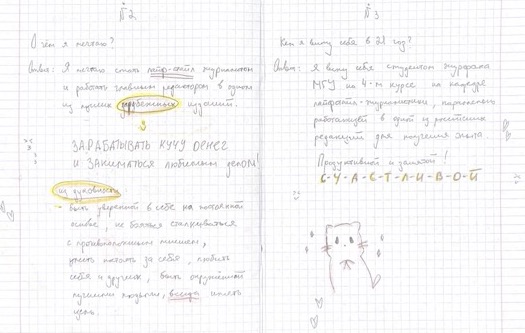 №2
О чём я мечтаю?
Ответ: Я мечтаю стать лайф-стайл журналистом
и работать главным редактором в одном
из лучших зарубежных изданий.
ЗАРАБАТЫВАТЬ КУЧУ ДЕНЕГ
И ЗАНИМАТЬСЯ ЛЮБИМЫМ ДЕЛОМ!
из духовности
- быть уверенной в себе на постоянной
основе, не бояться сталкиваться
с противоположным мнением,
уметь постоять за себя, любить
себя и других, быть окружённой
лучшими людьми, всегда иметь
цель.
№3
Кем я вижу себя в 21 год?
Ответ: Я вижу себя студентом журфака
МГУ на 4-м курсе на кафедре
лайфстайл-журналистики, параллельно
работающей в одной из российских
редакций для получения опыта.
Продуктивной и занятой!
С-Ч-А-С-Т-Л-И-В-О-Й